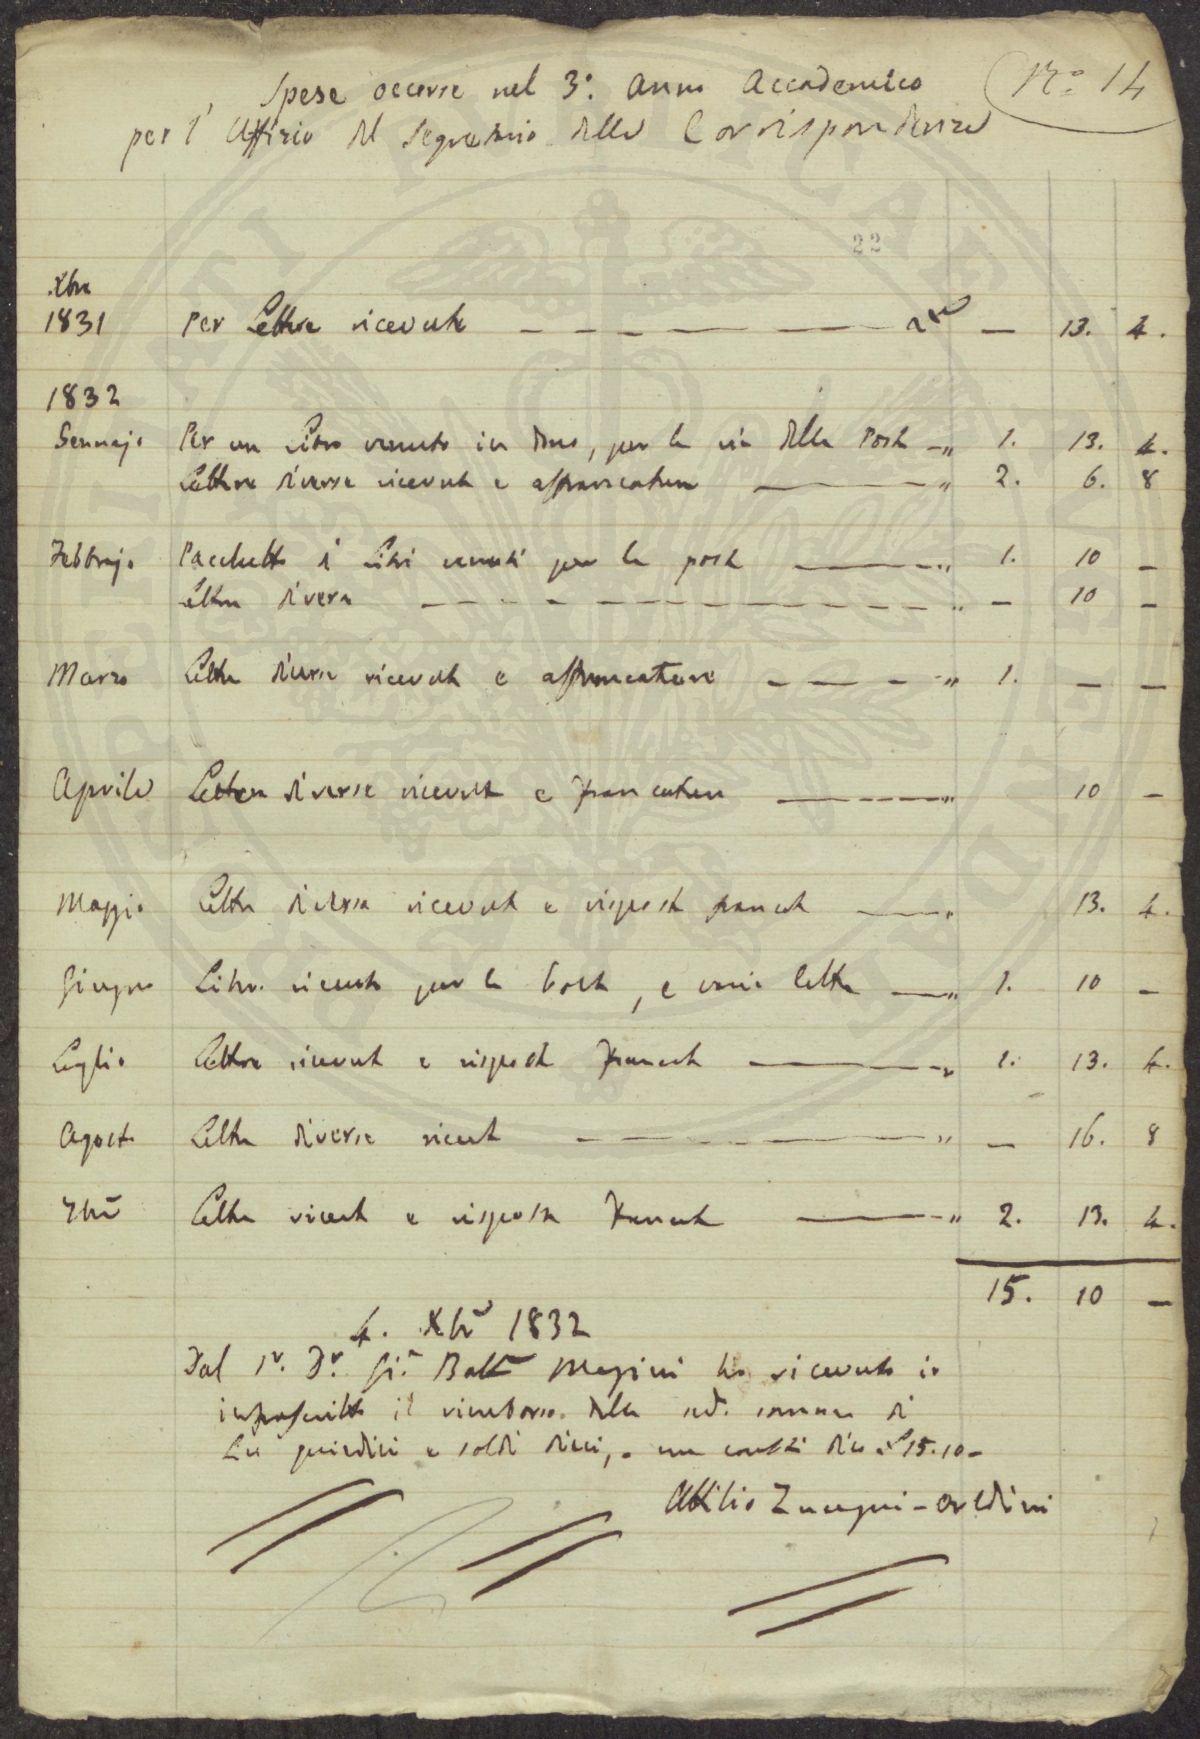 Nº 14
Spese occorse nel 3º: anno Accademico
per l'Uffizio del Segretario della Corrispondenza
22
Xbre
1831 Per Lettere ricevute — 13. 4.
1832
Gennajo Per un Libro venuto in dono, per la via della Posta „ 1. 13. 4.
Lettere diverse ricevute e affrancature „ 2. 6. 8
Febbrajo Pacchetto di Libri venuti per la posta „ 1. 10 —
Lettere diverse „ — 10 —
Marzo Lettere diverse ricevute e affrancature „ 1. — —
Aprile Lettere diverse ricevute e francature „ 10 —
Maggio Lettere diverse ricevute e risposte francate „ 13. 4.
Giugno Libro ricevuto per la Posta, e varie lettere „ 1. 10 —
Luglio Lettere ricevute e risposte francate „ 1. 13. 4.
Agosto Lettere diverse ricevute „ — 16. 8
7bre Lettere ricevute e risposte francate „ 2. 13. 4.
15. 10 —
4. Xbre 1832
Dal Sr. Dr. Gio. Batta Magini ho ricevuto io
infrascritto il rimborso della sud. somma di
Lire quindici e soldi dieci, in contanti dico £ 15.10 –
Attilio Zuccagni-Orlandini